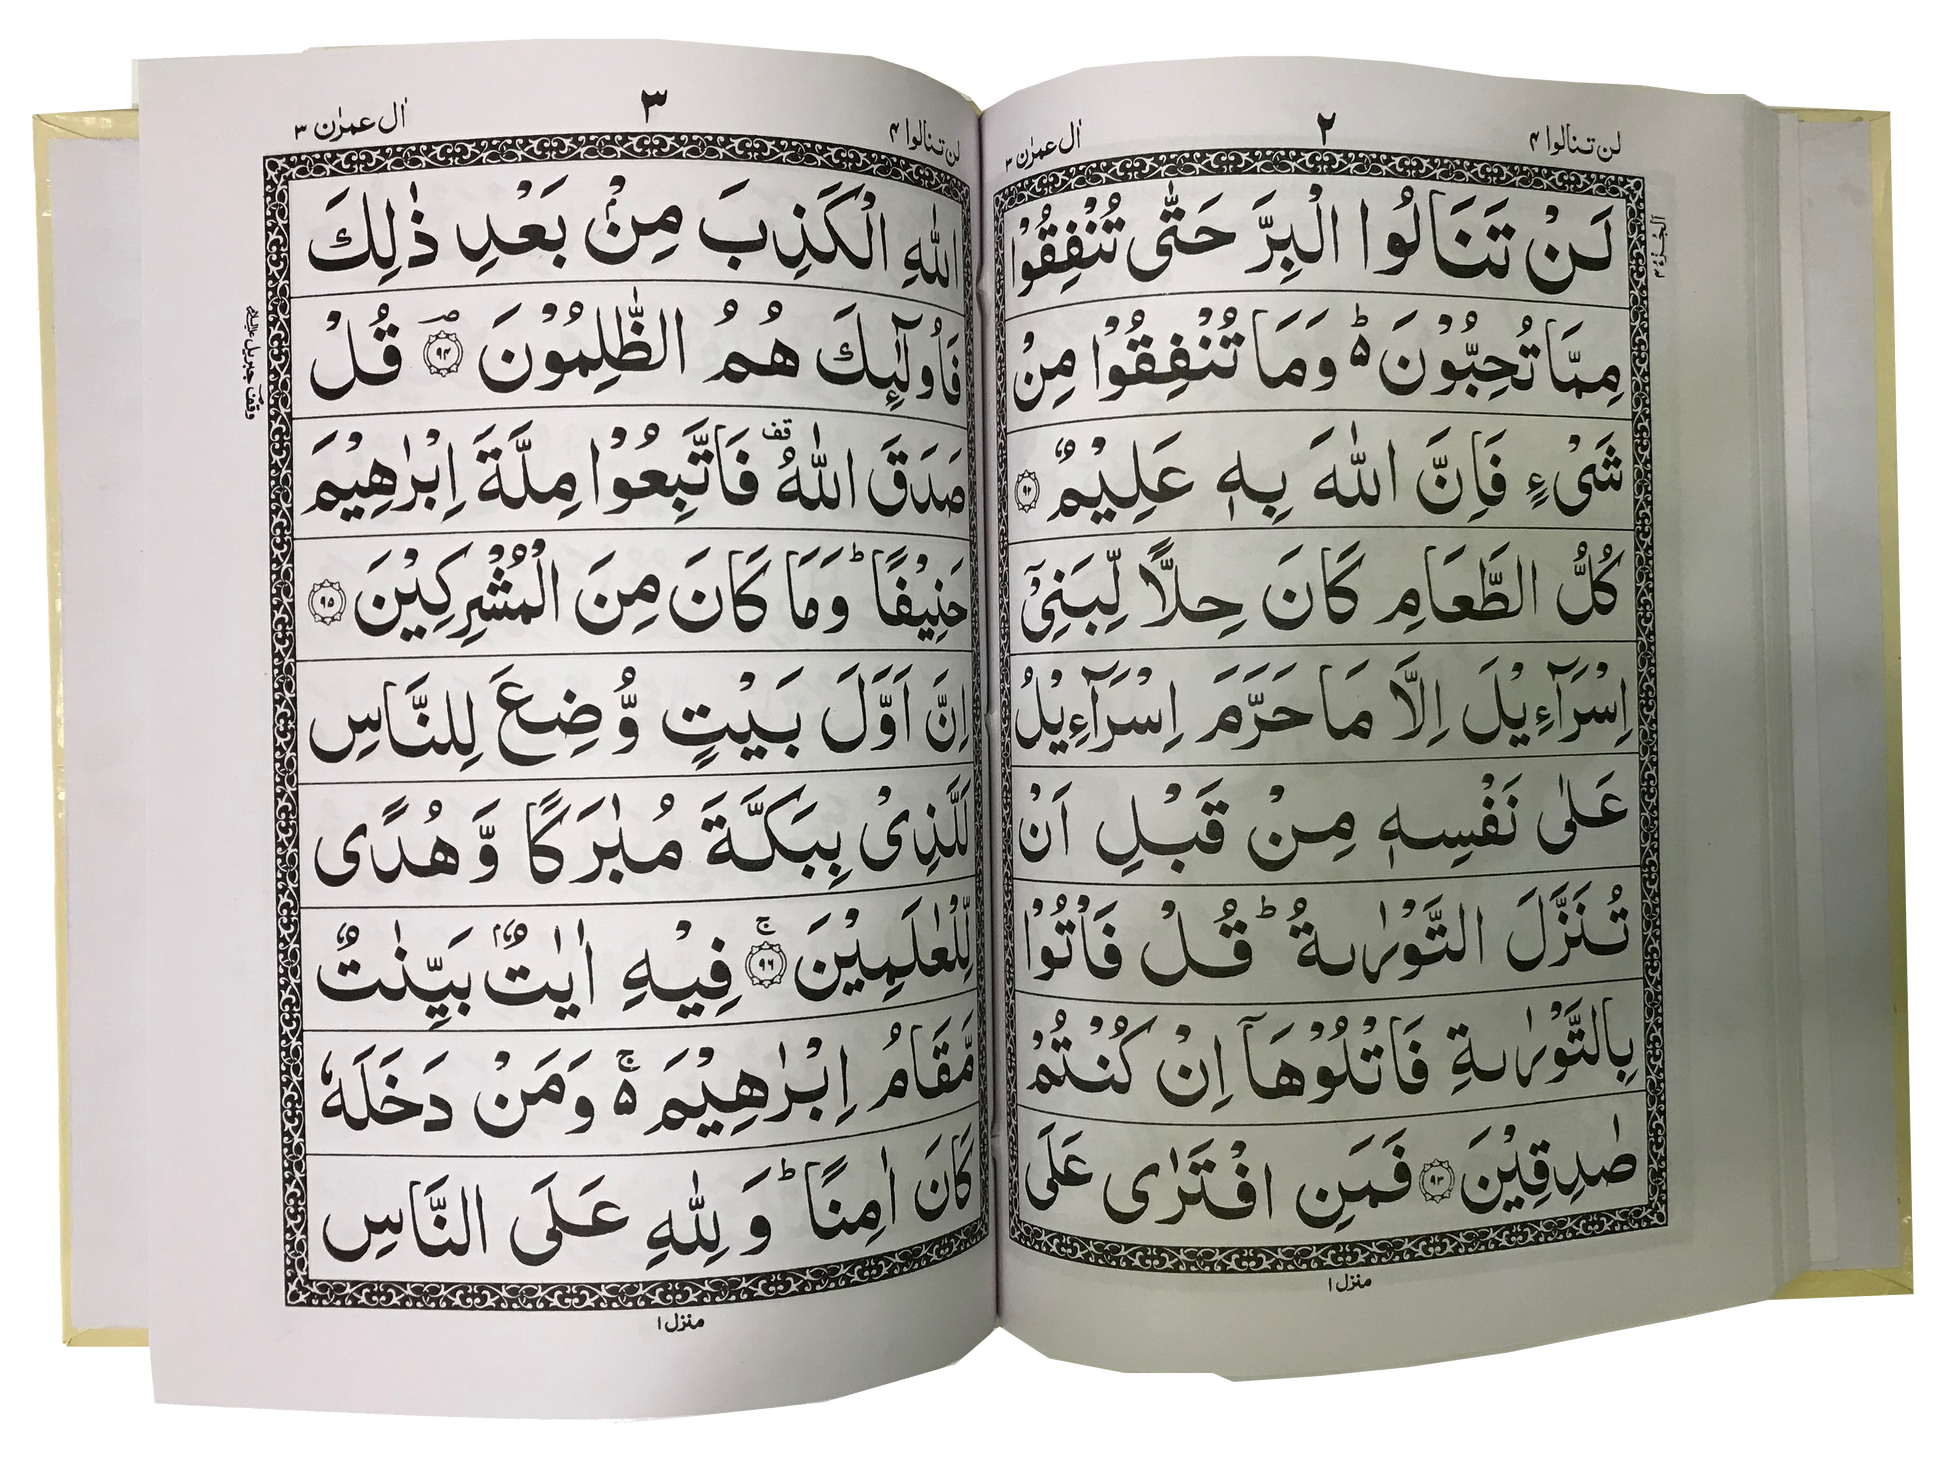 لن تنالوا ۴
۲
اٰل عمرٰن ۳
لَنْ تَنَالُوا الْبِرَّ حَتّٰى تُنْفِقُوْا
مِمَّا تُحِبُّوْنَ ؕ۵ وَمَا تُنْفِقُوْا مِنْ
شَىْءٍ فَاِنَّ اللّٰهَ بِهٖ عَلِيْمٌ ۹۲
كُلُّ الطَّعَامِ كَانَ حِلًّا لِّبَنِىْۤ
اِسْرَآءِيْلَ اِلَّا مَا حَرَّمَ اِسْرَآءِيْلُ
عَلٰى نَفْسِهٖ مِنْ قَبْلِ اَنْ
تُنَزَّلَ التَّوْرٰىةُ ؕ قُلْ فَاْتُوْا
بِالتَّوْرٰىةِ فَاتْلُوْهَاۤ اِنْ كُنْتُمْ
صٰدِقِيْنَ ۹۳ فَمَنِ افْتَرٰى عَلَى
منزل ۱
لن تنالوا ۴
۳
اٰل عمرٰن ۳
اللّٰهِ الْكَذِبَ مِنْۢ بَعْدِ ذٰلِكَ
فَاُولٰٓئِكَ هُمُ الظّٰلِمُوْنَ ؔ ۹۴ قُلْ
صَدَقَ اللّٰهُ قف فَاتَّبِعُوْا مِلَّةَ اِبْرٰهِيْمَ
حَنِيْفًا ؕ وَمَا كَانَ مِنَ الْمُشْرِكِيْنَ ۹۵
اِنَّ اَوَّلَ بَيْتٍ وُّضِعَ لِلنَّاسِ
لَلَّذِىْ بِبَكَّةَ مُبٰرَكًا وَّهُدًى
لِّلْعٰلَمِيْنَ ۚ ۹۶ فِيْهِ اٰيٰتٌۢ بَيِّنٰتٌ
مَّقَامُ اِبْرٰهِيْمَ ۚ۵ وَمَنْ دَخَلَهٗ
كَانَ اٰمِنًا ؕ وَلِلّٰهِ عَلَى النَّاسِ
منزل ۱